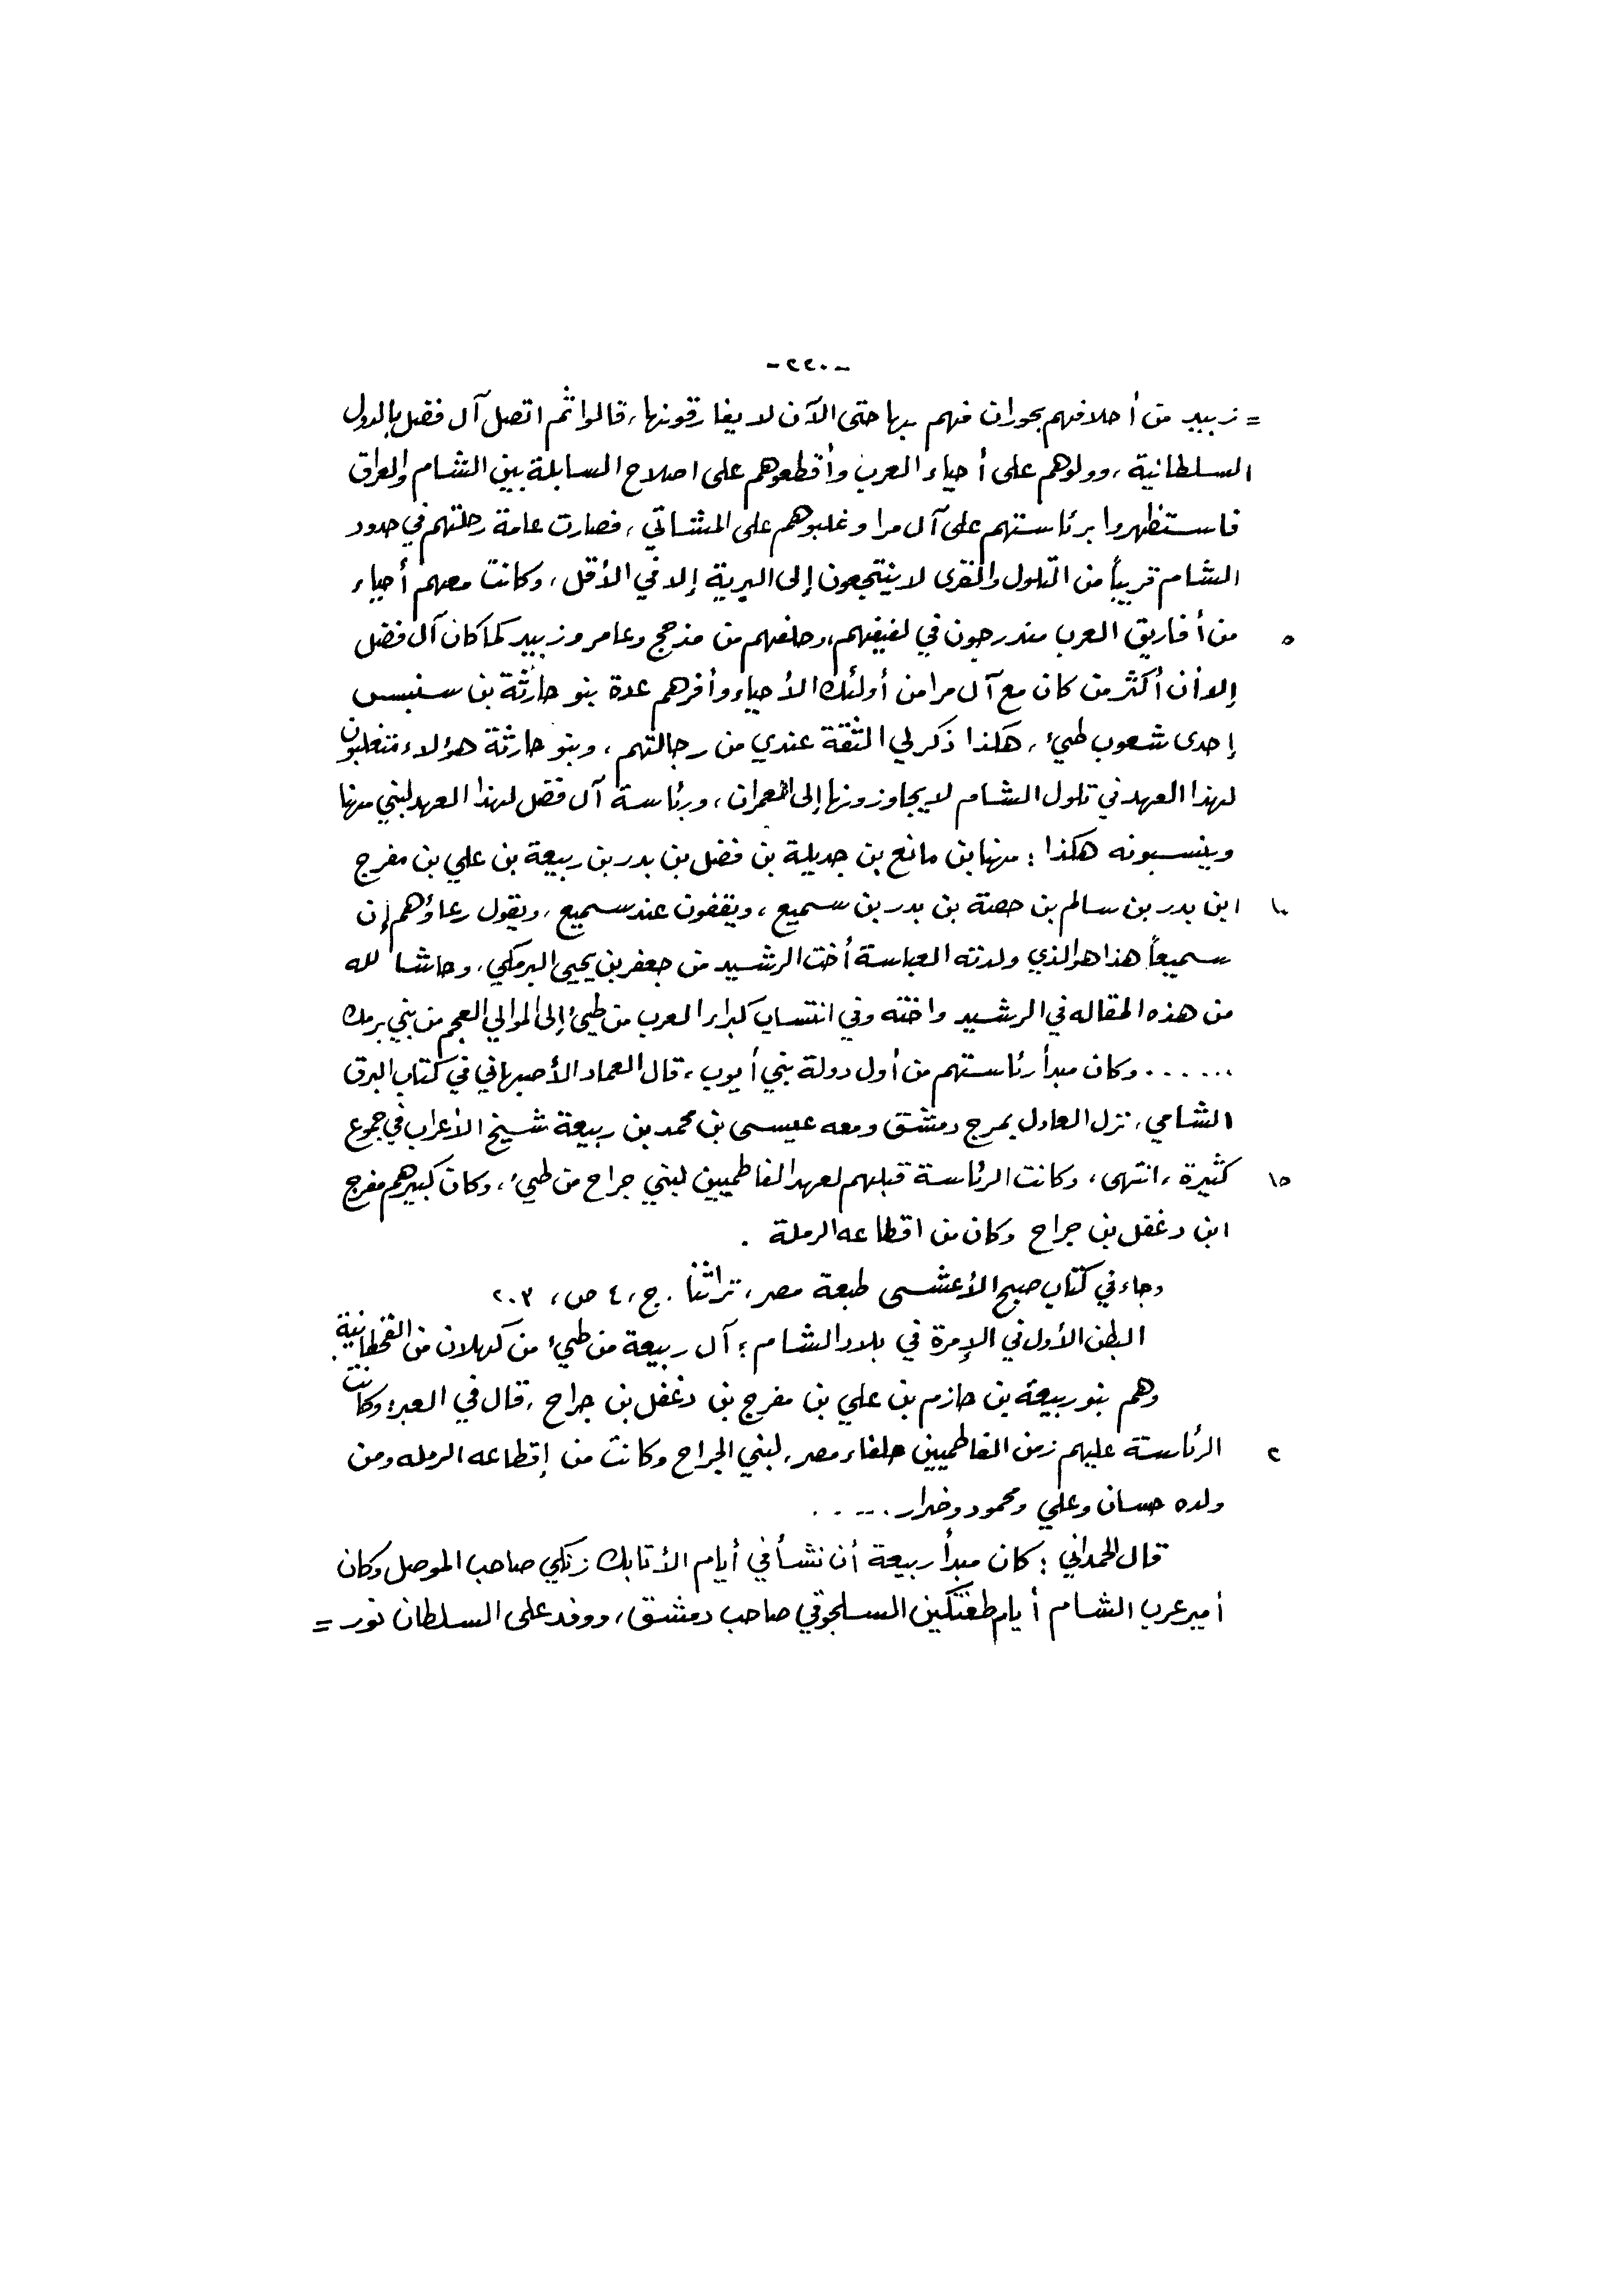 -٢٢٠-
= زبيد من أحلافهم بحوران فهم بها حتى الآن لا يفارقونها، قالوا ثم اتصل آل فضل بالدول
السلطانية، وولوهم على أحياء العرب وأقطعوهم على اصلاح السابلة بين الشام والعراق
فاستظهروا برئاستهم على آل مرا وغلبوهم على المشاتي، فصارت عامة رحلتهم في حدود
الشام قريباً من التلول والقرى لا ينتجعون إلى البرية إلا في الأقل، وكانت معهم أحياء
٥ من أفاريق العرب مندرجون في لفيفهم، وحلفهم من مذحج وعامر وزبيد كما كان آل فضل
إلا أن أكثر من كان مع آل مرا من أولئك الأحياء وأفرهم عدة بنو حارثة بن سنبس
إحدى شعوب طيء، هكذا ذكر لي الثقة عندي من رجالتهم، وبنو حارثة هؤلاء متغلبون
لهذا العهد في تلول الشام لا يجاوزونها إلى العمران، ورئاسة آل فضل لهذا العهد لبني مهنا
وينسبونه هكذا: مهنا بن مانع بن جديلة بن فضل بن بدر بن ربيعة بن علي بن مفرج
١٠ ابن بدر بن سالم بن حصنة بن بدر بن سميع، ويقفون عند سميع، ويقول رعاؤهم إن
سميعاً هذا هو الذي ولدته العباسة أخت الرشيد من جعفر بن يحيى البرمكي، وحاشا لله
من هذه المقاله في الرشيد واخته وفي انتساب كبراء العرب من طيء إلى الموالي العجم من بني برمك
...... وكان مبدأ رئاستهم من أول دولة بني أيوب، قال العماد الأصبهاني في كتاب البرق
الشامي، نزل العادل بمرج دمشق ومعه عيسى بن محمد بن ربيعة شيخ الأعراب في جموع
١٥ كثيرة، انتهى، وكانت الرئاسة قبلهم لعهد الفاطميين لبني جراح من طيء، وكان كبيرهم مفرج
ابن دغفل بن جراح وكان من اقطاعه الرملة .
وجاء في كتاب صبح الأعشى طبعة مصر، تراثنا . ج، ٤ ص، ٢٠٣
البطن الأول في الإمرة في بلاد الشام: آل ربيعة من طيء من كهلان من القحطانية.
وهم بنو ربيعة بن حازم بن علي بن مفرج بن دغفل بن جراح، قال في العبر: وكانت
٢ الرئاسة عليهم زمن الفاطميين خلفاء مصر، لبني الجراح وكانت من إقطاعه الرمله ومن
ولده حسان وعلي ومحمود وضرار.....
قال الحمداني: كان مبدأ ربيعة أن نشأ في أيام الأتابك زنكي صاحب الموصل وكان
أمير عرب الشام أيام طغتكين السلجوقي صاحب دمشق، ووفد على السلطان نور =